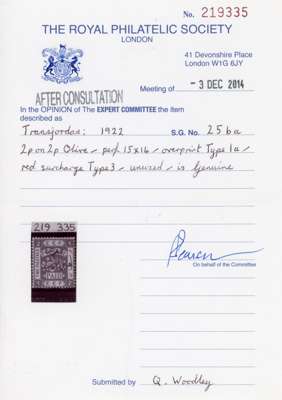 No. 219335
THE ROYAL PHILATELIC SOCIETY
LONDON
41 Devonshire Place
London W1G 6JY
Meeting of - 3 DEC 2014
AFTER CONSULTATION
In the OPINION of The EXPERT COMMITTEE the item
described as
Transjordan: 1922 S.G. No. 25ba
2p on 2p Olive, perf. 15x14, overprint Type 1a,
red surcharge Type 3, unused, is Genuine
219 335
PAID
On behalf of the Committee
Submitted by Q. Woodley